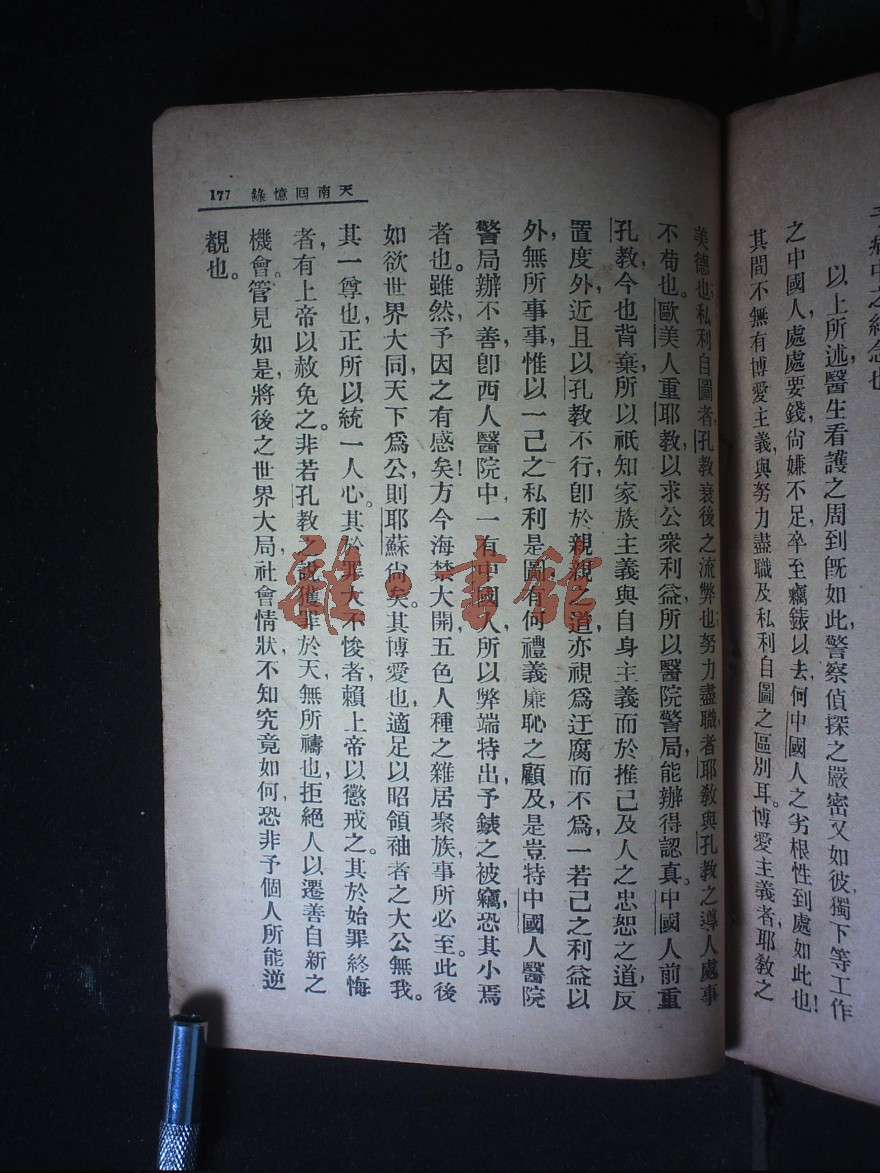 病中之紀念也
以上所述醫生看護之周到旣如此,警察偵探之嚴密又如彼,獨下等工作
之中國人,處處要錢,尙嫌不足,卒至竊錶以去,何中國人之劣根性,到處如此也!
其間不無有博愛主義,與努力盡職及私利自圖之區別耳。博愛主義者,耶敎之
天南回憶錄 177
美德也;私利自圖者,孔敎衰後之流弊也;努力盡職者,耶敎與孔敎之導人處事
不苟也。歐美人重耶敎,以求公衆利益,所以醫院警局,能辦得認真。中國人前重
孔敎,今也背棄,所以祇知家族主義與自身主義,而於推己及人之忠恕之道,反
置度外,近且以孔敎不行,卽於親親之道,亦視爲迂腐而不爲,一若己之利益以
外,無所事事,惟以一己之私利是圖,有何禮義廉恥之顧及,是豈特中國人醫院
警局辦不善,卽西人醫院中,一有中國人,所以弊端特出,予錶之被竊,恐其小焉
者也。雖然,予因之有感矣!方今海禁大開,五色人種之雜居聚族,事所必至。此後
如欲世界大同,天下爲公,則耶蘇尙矣。其博愛也,適足以昭領袖者之大公無我。
其一尊也,正所以統一人心。其於罪大不悛者,賴上帝以懲戒之。其於始罪終悔
者,有上帝以赦免之。非若孔敎之說,獲罪於天,無所禱也,拒絕人以遷善自新之
機會。管見如是,將後之世界大局,社會情狀,不知究竟如何,恐非予個人所能逆
覩也。
雜·書館